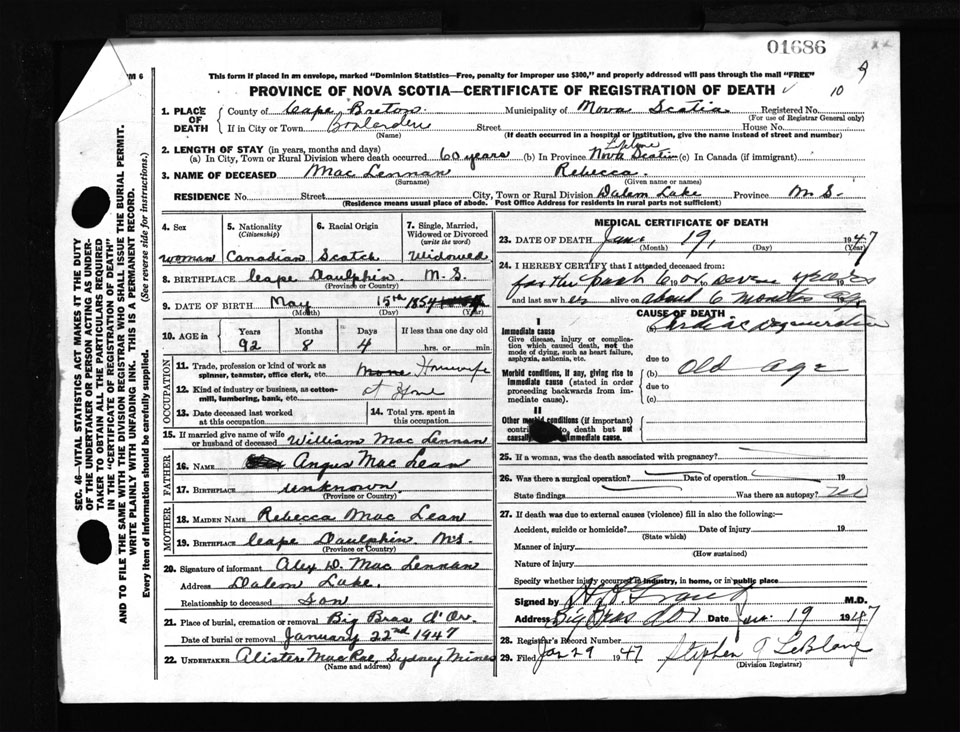 01686
M 6
This form if placed in an envelope, marked "Dominion Statistics—Free, penalty for improper use $300," and properly addressed will pass through the mail "FREE"
9
PROVINCE OF NOVA SCOTIA—CERTIFICATE OF REGISTRATION OF DEATH
10
1. PLACE OF DEATH
County of Cape Breton Municipality of Nova Scotia Registered No.
(For use of Registrar General only)
If in City or Town Boularderie Street House No.
(Name) (If death occurred in a hospital or institution, give the name instead of street and number)
2. LENGTH OF STAY (in years, months and days)
(a) In City, Town or Rural Division where death occurred 60 years (b) In Province Lifetime Nova Scotia (c) In Canada (if immigrant)
3. NAME OF DECEASED Mac Lennan Rebecca.
(Surname) (Given name or names)
RESIDENCE No. Street City, Town or Rural Division Dalem Lake Province N.S.
(Residence means usual place of abode. Post Office Address for residents in rural parts not sufficient)
4. Sex
woman
5. Nationality
(Citizenship)
Canadian
6. Racial Origin
Scotch
7. Single, Married, Widowed or Divorced
(write the word)
Widowed
8. BIRTHPLACE Cape Daulphin N.S.
(Province or Country)
9. DATE OF BIRTH May 15th 1854
(Month) (Day) (Year)
10. AGE in Years Months Days If less than one day old
92 8 4 hrs. or min.
OCCUPATION
11. Trade, profession or kind of work as spinner, teamster, office clerk, etc. None Housewife
12. Kind of industry or business, as cotton-mill, lumbering, bank, etc. at Home
13. Date deceased last worked at this occupation
14. Total yrs. spent in this occupation
15. If married give name of wife or husband of deceased William Mac Lennan
FATHER
16. NAME Angus Mac Lean
17. BIRTHPLACE unknown.
(Province or Country)
MOTHER
18. MAIDEN NAME Rebecca Mac Lean
19. BIRTHPLACE Cape Daulphin N.S.
(Province or Country)
20. Signature of informant Alex D. Mac Lennan
Address Dalem Lake.
Relationship to deceased Son
21. Place of burial, cremation or removal Big Bras d'Or.
Date of burial or removal January 22nd 1947
22. UNDERTAKER Alister MacRae, Sydney Mines
(Name and address)
MEDICAL CERTIFICATE OF DEATH
23. DATE OF DEATH Jan 19, 1947
(Month) (Day) (Year)
24. I HEREBY CERTIFY that I attended deceased from:
for the past 6 or seven years 19
and last saw her alive on about 6 months ago
CAUSE OF DEATH
I
Immediate cause
Give disease, injury or complication which caused death, not the mode of dying, such as heart failure, asphyxia, asthenia, etc.
(a) Cardiac Degeneration
due to
Morbid conditions, if any, giving rise to immediate cause (stated in order proceeding backwards from immediate cause).
(b) Old age
due to
(c)
II
Other morbid conditions (if important) contributing to death but not causally immediate cause.
25. If a woman, was the death associated with pregnancy?
26. Was there a surgical operation? Date of operation 19
State findings Was there an autopsy? No
27. If death was due to external causes (violence) fill in also the following—
Accident, suicide or homicide? Date of injury 19
(State which)
Manner of injury
(How sustained)
Nature of injury
Specify whether injury occurred in industry, in home, or in public place
Signed by M.D.
Address Big Bras Dor Date Jan. 19 1947
28. Registrar's Record Number
29. Filed Jan 29 1947 Stephen J LeBlanc
(Division Registrar)
SEC. 46—VITAL STATISTICS ACT MAKES IT THE DUTY
OF THE UNDERTAKER OR PERSON ACTING AS UNDER-
TAKER TO OBTAIN ALL THE PARTICULARS REQUIRED
IN THE "CERTIFICATE OF REGISTRATION OF DEATH"
AND TO FILE THE SAME WITH THE DIVISION REGISTRAR WHO SHALL ISSUE THE BURIAL PERMIT.
WRITE PLAINLY WITH UNFADING INK. THIS IS A PERMANENT RECORD.
Every item of information should be carefully supplied. (See reverse side for instructions.)